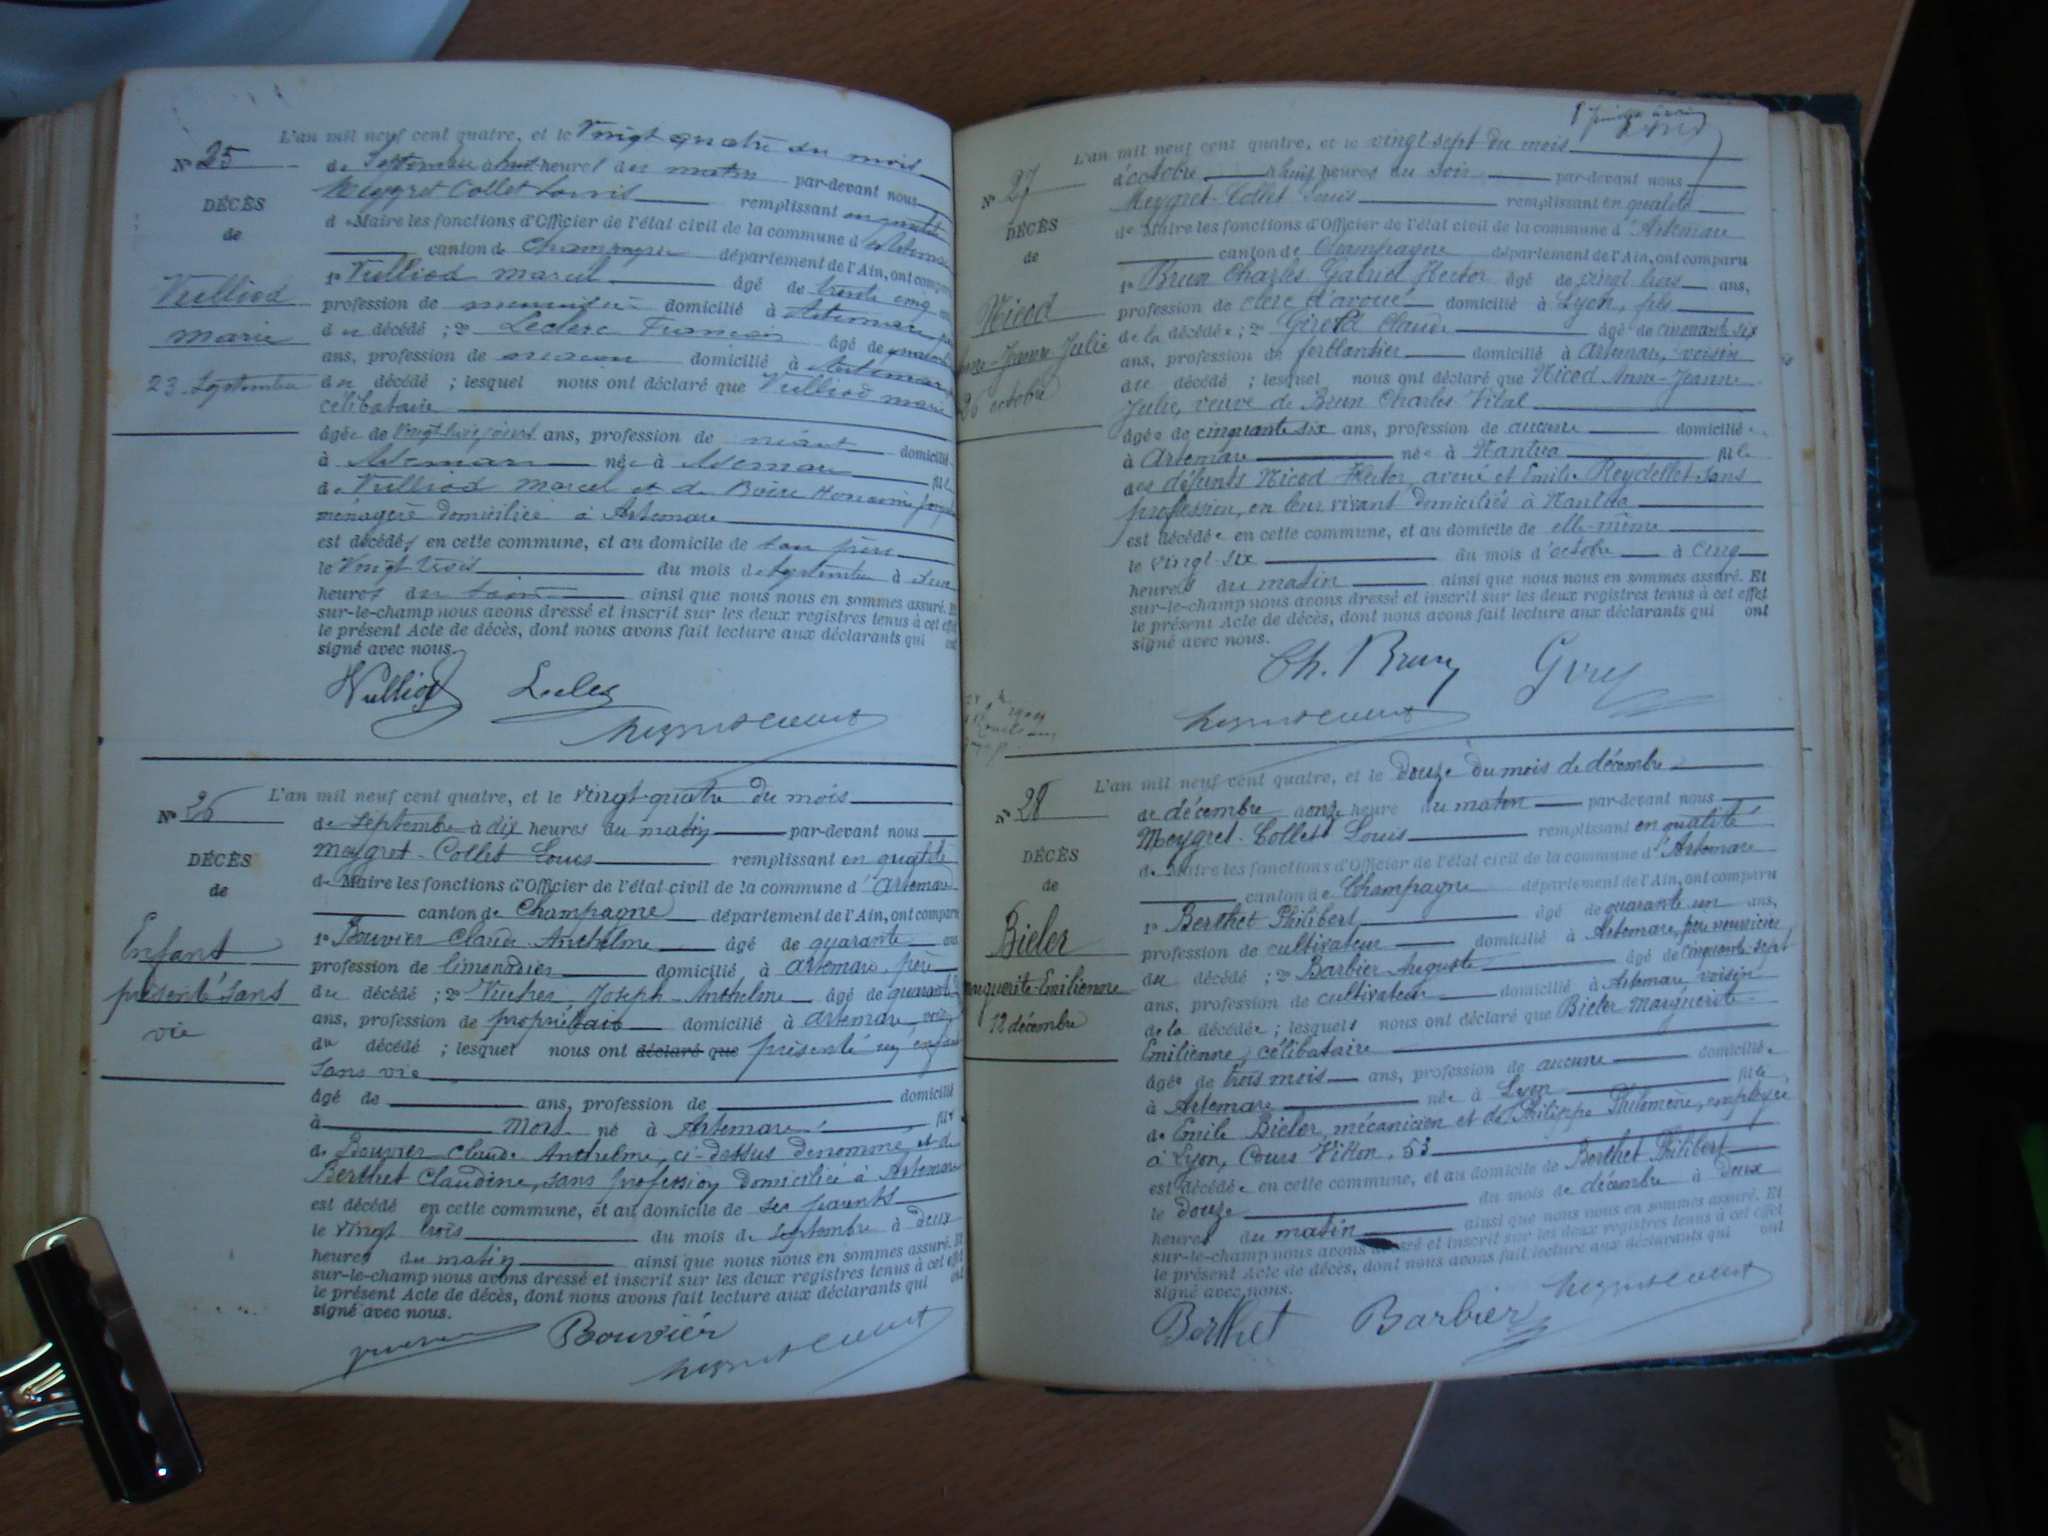 L'an mil neuf cent quatre, et le Vingt quatre du mois
N° 25
de Septembre à huit heures du matin par-devant nous
Meygret Collet Louis remplissant en qualité
DÉCÈS
de Maire les fonctions d'Officier de l'état civil de la commune d'Artemare
de
canton de Champagne département de l'Ain, ont comparu
1° Vulliod Marcel âgé de trente cinq
Vulliod
profession de menuisier domicilié à Artemare
marie
du décédé ; 2° Leclerc François âgé de
ans, profession de maçon domicilié à Artemare
23 Septembre
du décédé ; lesquel nous ont déclaré que Vulliod marie
célibataire
âgée de jours ans, profession de néant domicilié
à Artemare née à Artemare fille
de Vulliod Marcel et de
ménagère domiciliée à Artemare
est décédés en cette commune, et au domicile de son père
le Vingt trois du mois de septembre à
heures du ainsi que nous nous en sommes assuré. Et
sur-le-champ nous avons dressé et inscrit sur les deux registres tenus à cet effet
le présent Acte de décès, dont nous avons fait lecture aux déclarants qui ont
signé avec nous.
Vulliod Lecler
Meygret Collet
L'an mil neuf cent quatre, et le vingt-quatre du mois
N° 26
de septembre à dix heures du matin par-devant nous
Meygret-Collet Louis remplissant en qualité
DÉCÈS
de Maire les fonctions d'Officier de l'état civil de la commune d'Artemare
de
canton de Champagne département de l'Ain, ont comparu
1° Bouvier Claude Anthelme âgé de quarante ans
Enfant
profession de limonadier domicilié à Artemare, père
présenté sans
du décédé ; 2° Joseph-Anthelme âgé de quarante
vie
ans, profession de propriétaire domicilié à Artemare,
du décédé ; lesquel nous ont déclaré que présenté un enfant
sans vie
âgé de ans, profession de domicilié
à mort né à Artemare fils
de Bouvier Claude Anthelme, ci-dessus dénommé, et de
Berthet Claudine, sans profession domiciliée à Artemare
est décédé en cette commune, et au domicile de ses parents
le vingt trois du mois de septembre à deux
heures du matin ainsi que nous nous en sommes assuré. Et
sur-le-champ nous avons dressé et inscrit sur les deux registres tenus à cet effet
le présent Acte de décès, dont nous avons fait lecture aux déclarants qui ont
signé avec nous.
Bouvier
Meygret Collet
L'an mil neuf cent quatre, et le vingt sept du mois
N° 27
d'octobre à huit heures du soir par-devant nous
Meygret-Collet Louis remplissant en qualité
DÉCÈS
de Maire les fonctions d'Officier de l'état civil de la commune d'Artemare
de
canton de Champagne département de l'Ain, ont comparu
1° Brun Charles Gabriel Hector âgé de vingt trois ans,
Nicod
profession de clerc d'avoué domicilié à Lyon, fils
Anne-Jeanne-Julie
de la décédée ; 2° Claude âgé de cinquante six
ans, profession de ferblantier domicilié à Artemare, voisin
26 octobre
du décédé ; lesquel nous ont déclaré que Nicod Anne-Jeanne
Julie, veuve de Brun Charles Vital
âgée de cinquante six ans, profession de aucune domiciliée
à Artemare née à Nantua fille
des défunts Nicod Hector, avoué et Emilie Reydellet sans
profession, en leur vivant domiciliés à Nantua
est décédée en cette commune, et au domicile de elle-même
le vingt six du mois d'octobre à cinq
heures du matin ainsi que nous nous en sommes assuré. Et
sur-le-champ nous avons dressé et inscrit sur les deux registres tenus à cet effet
le présent Acte de décès, dont nous avons fait lecture aux déclarants qui ont
signé avec nous.
Ch. Brun
Meygret Collet
L'an mil neuf cent quatre, et le douze du mois de décembre
N° 28
de décembre à onze heure du matin par-devant nous
Meygret-Collet Louis remplissant en qualité
DÉCÈS
de Maire les fonctions d'Officier de l'état civil de la commune d'Artemare
de
canton de Champagne département de l'Ain, ont comparu
1° Berthet Philibert âgé de quarante un ans,
Bieler
profession de cultivateur domicilié à Artemare, père nourricier
Marguerite-Emilienne
du décédé ; 2° Barbier Auguste âgé de cinquante sept
ans, profession de cultivateur domicilié à Artemare, voisin
12 décembre
de la décédée ; lesquels nous ont déclaré que Bieler Marguerite
Emilienne, célibataire
âgée de trois mois ans, profession de aucune domiciliée
à Artemare née à Lyon fille
de Emile Bieler, mécanicien et de Philippe Philomène, employée
à Lyon, Cours Vitton, 53
est décédée en cette commune, et au domicile de Berthet Philibert
le douze du mois de décembre à deux
heures du matin ainsi que nous nous en sommes assuré. Et
sur-le-champ nous avons dressé et inscrit sur les deux registres tenus à cet effet
le présent Acte de décès, dont nous avons fait lecture aux déclarants qui ont
signé avec nous.
Meygret Collet
Berthet Barbier